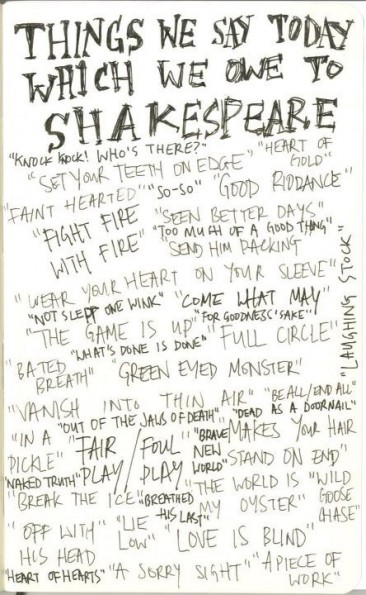 THINGS WE SAY TODAY
WHICH WE OWE TO
SHAKESPEARE
"KNOCK KNOCK! WHO'S THERE?" "HEART OF GOLD"
"SET YOUR TEETH ON EDGE"
"FAINT HEARTED" "SO-SO" "GOOD RIDDANCE"
"FIGHT FIRE WITH FIRE" "SEEN BETTER DAYS"
"TOO MUCH OF A GOOD THING"
"SEND HIM PACKING
"LAUGHING STOCK"
"WEAR YOUR HEART ON YOUR SLEEVE"
"NOT SLEPP ONE WINK" "COME WHAT MAY"
"THE GAME IS UP" "FOR GOODNESS' SAKE" "FULL CIRCLE"
"WHAT'S DONE IS DONE"
"BATED BREATH" "GREEN EYED MONSTER"
"VANISH INTO THIN AIR" "BE ALL/END ALL"
"OUT OF THE JAWS OF DEATH" "DEAD AS A DOORNAIL"
"IN A PICKLE" "FAIR PLAY/FOUL PLAY" "BRAVE NEW WORLD" "MAKES YOUR HAIR STAND ON END"
"NAKED TRUTH"
"BREAK THE ICE" "BREATHED HIS LAST" "THE WORLD IS MY OYSTER" "WILD GOOSE CHASE"
"OFF WITH HIS HEAD "LIE LOW" "LOVE IS BLIND"
"HEART OF HEARTS" "A SORRY SIGHT" "A PIECE OF WORK"